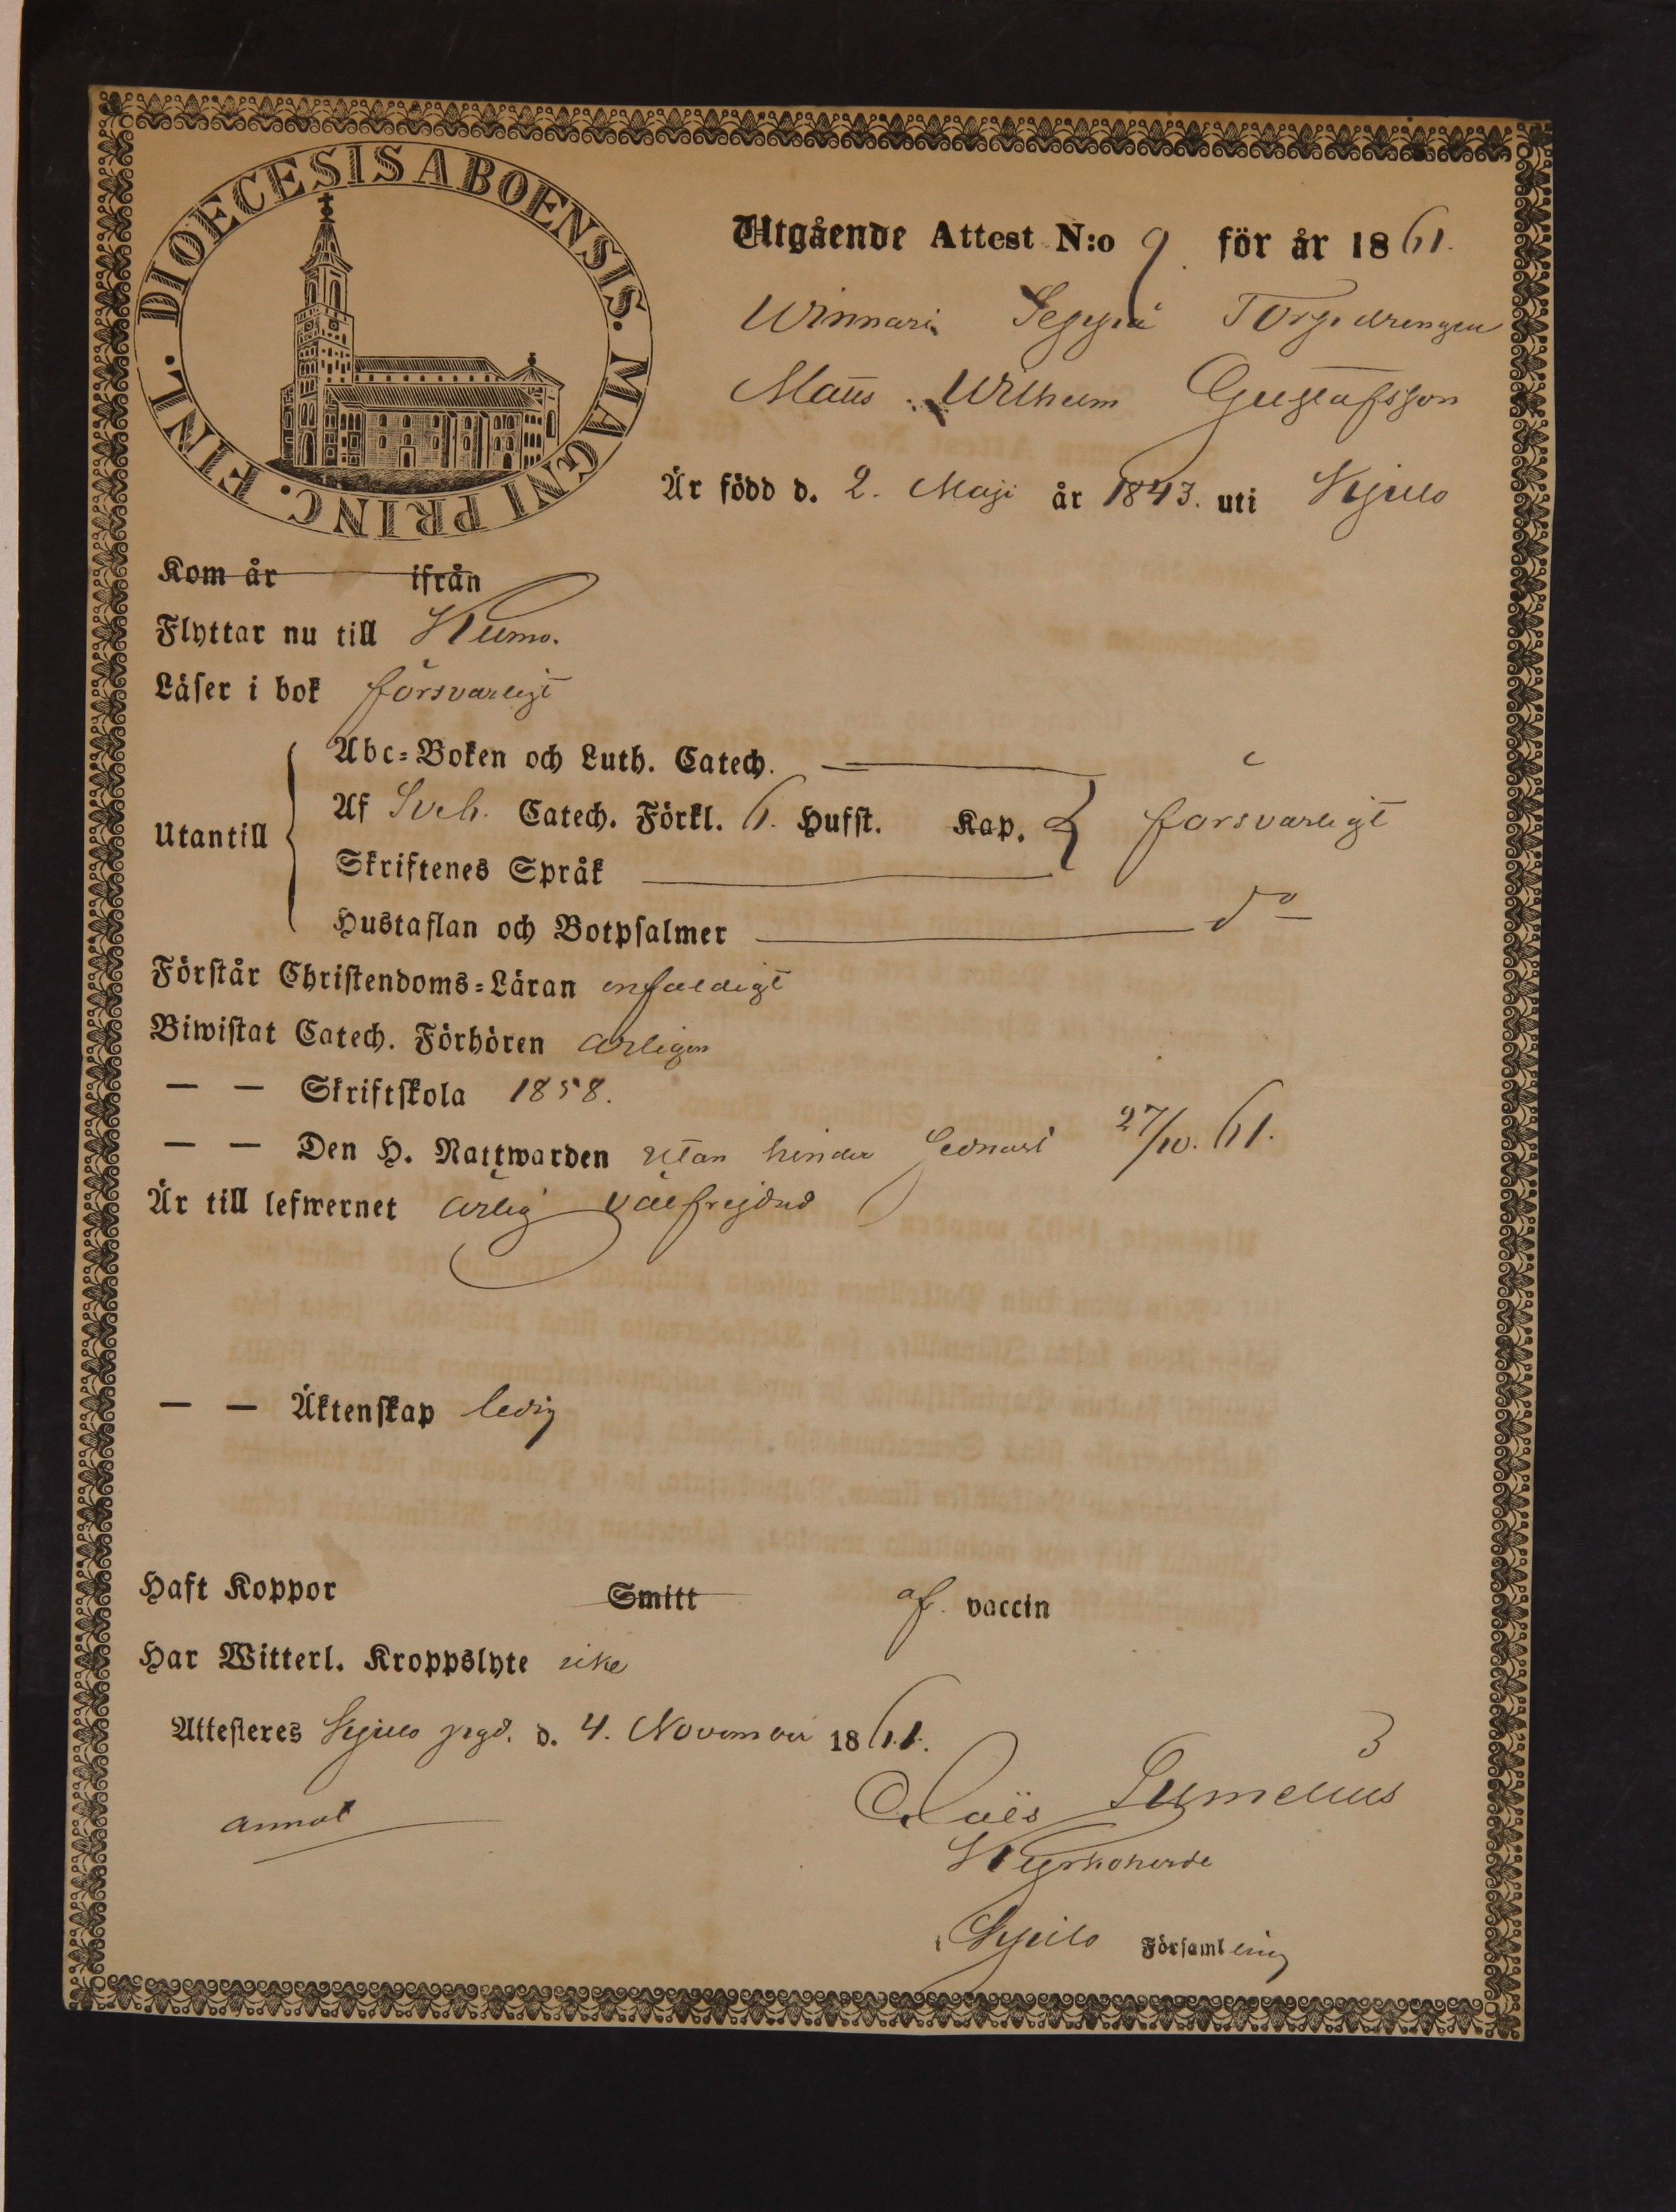 DIOECESIS ABOENSIS. MAGNI PRINC. FINL.
Utgående Attest N:o 9. för år 1861.
Winnari Seppä Torp drengen
Matts Wilhelm Gustafsson
Är född d. 2. Maji år 1843. uti Kjulo
Kom år ifrån
Flyttar nu till Kumo.
Läser i bok försvarligt
Abc=Boken och Luth. Catech.
Utantill
Af Sveb. Catech. Förkl. 6. Hufst. Kap. försvarligt
Skriftenes Språk
Hustaflan och Botpsalmer do
Förstår Christendoms=Läran enfaldigt
Biwistat Catech. Förhören årligen
— — Skriftskola 1858.
— — Den H. Nattwarden utan hinder senast 27/10. 61.
Är till lefwernet ärlig välfrejdad
— — Äktenskap ledig
Haft Koppor Smitt af vaccin
Har Witterl. Kroppslyte icke
Attesteres Kjulo pgd. d. 4. November 1861.
Claës Lumelius
annot
Kyrkoherde
Kjulo Församling